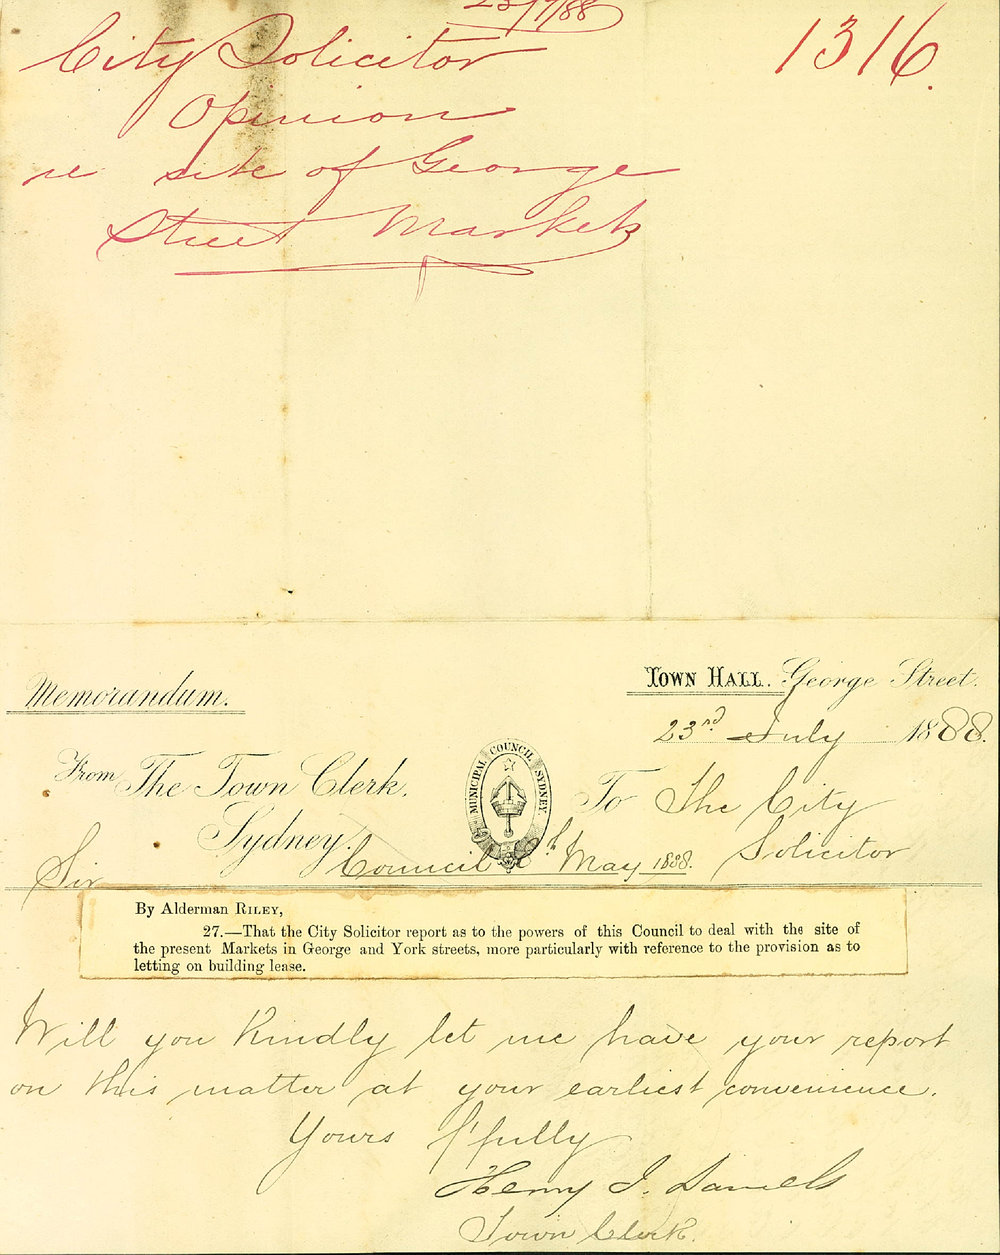 23/7/88
1316.
City Solicitor
Opinion
re site of George
Street Markets
Memorandum.
Town Hall. George Street.
23rd July 1888.
From The Town Clerk,
Sydney.
MUNICIPAL COUNCIL SYDNEY.
To The City
Solicitor
Sir
Council May 1888.
By Alderman RILEY,
27.—That the City Solicitor report as to the powers of this Council to deal with the site of
the present Markets in George and York streets, more particularly with reference to the provision as to
letting on building lease.
Will you Kindly let me have your report
on this matter at your earliest convenience.
Yours f'fully
Henry J. Daniels
Town Clerk.